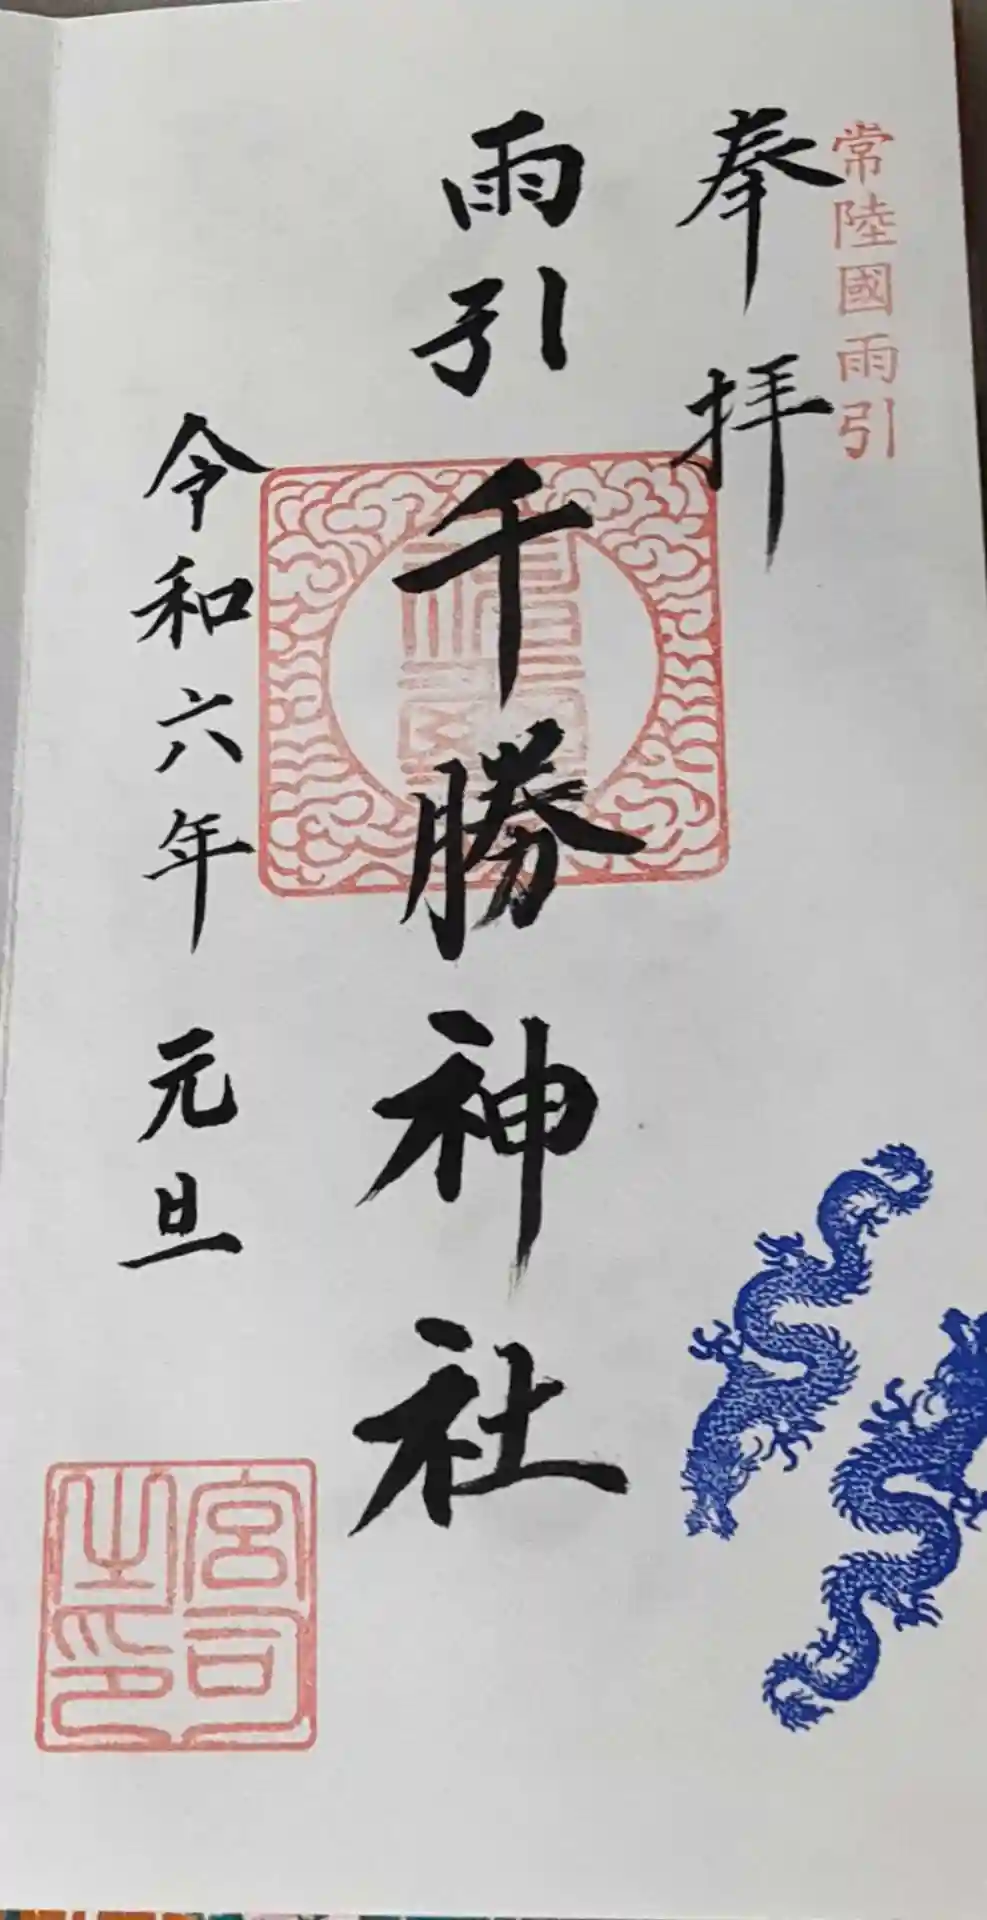 常陸國雨引
奉拝
雨引千勝神社
令和六年元旦
宮司
之印